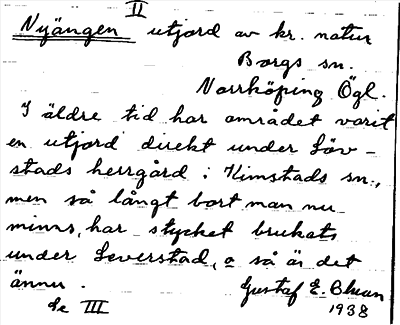 II
Nyängen utjord av kr. natur
Borgs sn.
Norrköping Ögl.
I äldre tid har området varit
en utjord direkt under Löv-
stads herrgård i Kimstads sn.,
men så långt bort man nu
minns, har stycket brukats
under Leverstad, o så är det
ännu.
Gustaf E. Bluun
Se III
1938